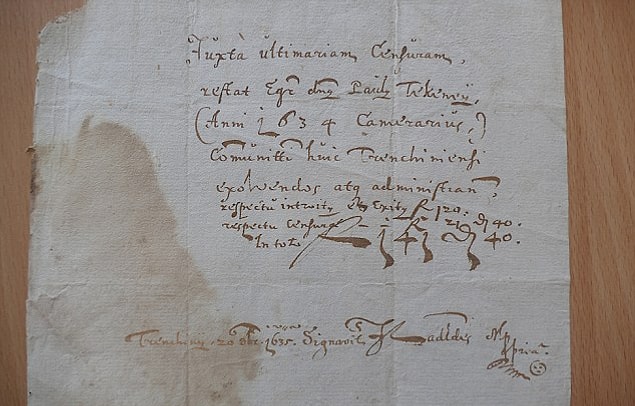 Juxtà ultimariam Censuram,
restat Egr dnq Paulq Tekeney,
(Anni 1634 Camerarius,)
Comunitti huic Trenchiniensi
exolvendos atq administran,
respectu introity et Exity f 120. d 40.
respectu Censurae f 21. d
In toto f 141 d 40.
Trenchiny 20 1635. Signavit